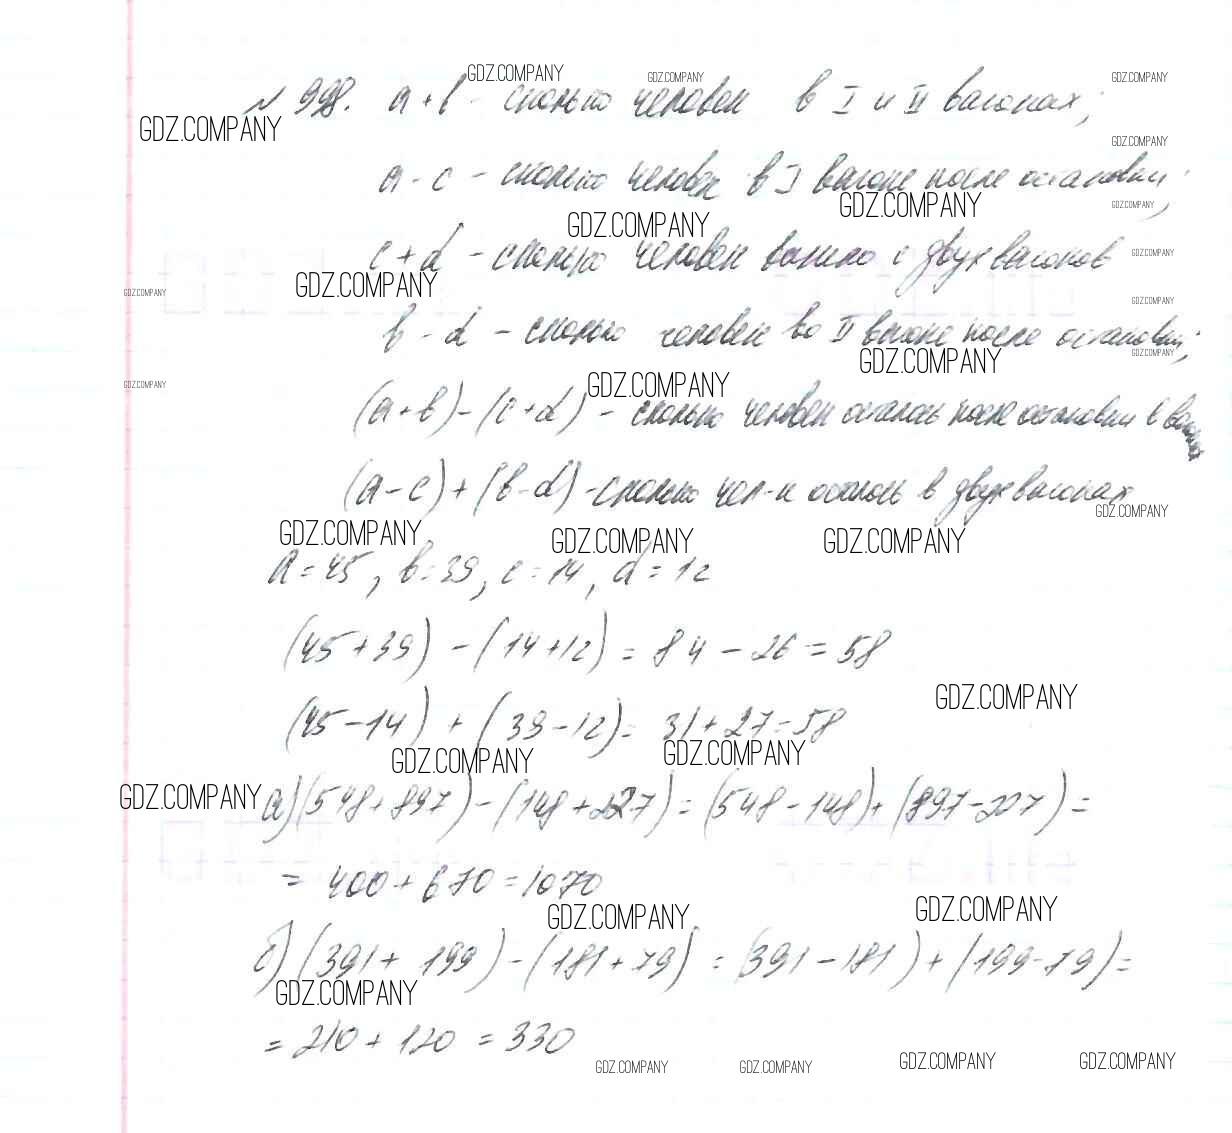 GDZ.COMPANY GDZ.COMPANY GDZ.COMPANY
№ 998. a + b - сколько человек в I и II вагонах;
GDZ.COMPANY GDZ.COMPANY
a - c - сколько человек в I вагоне после остановки;
GDZ.COMPANY GDZ.COMPANY GDZ.COMPANY
c + d - сколько человек вышло с двух вагонов
GDZ.COMPANY GDZ.COMPANY GDZ.COMPANY GDZ.COMPANY
b - d - сколько человек во II вагоне после остановки;
GDZ.COMPANY GDZ.COMPANY GDZ.COMPANY GDZ.COMPANY
(a + b) - (c + d) - сколько человек осталось после остановки в вагонах
(a - c) + (b - d) - сколько чел-к осталось в двух вагонах
GDZ.COMPANY GDZ.COMPANY GDZ.COMPANY GDZ.COMPANY
a = 45, b = 39, c = 14, d = 12
(45 + 39) - (14 + 12) = 84 - 26 = 58
GDZ.COMPANY
(45 - 14) + (39 - 12) = 31 + 27 = 58
GDZ.COMPANY GDZ.COMPANY
GDZ.COMPANY
а) (548 + 897) - (148 + 227) = (548 - 148) + (897 - 227) =
= 400 + 670 = 1070
GDZ.COMPANY GDZ.COMPANY
б) (391 + 199) - (181 + 79) = (391 - 181) + (199 - 79) =
GDZ.COMPANY
= 210 + 120 = 330
GDZ.COMPANY GDZ.COMPANY GDZ.COMPANY GDZ.COMPANY